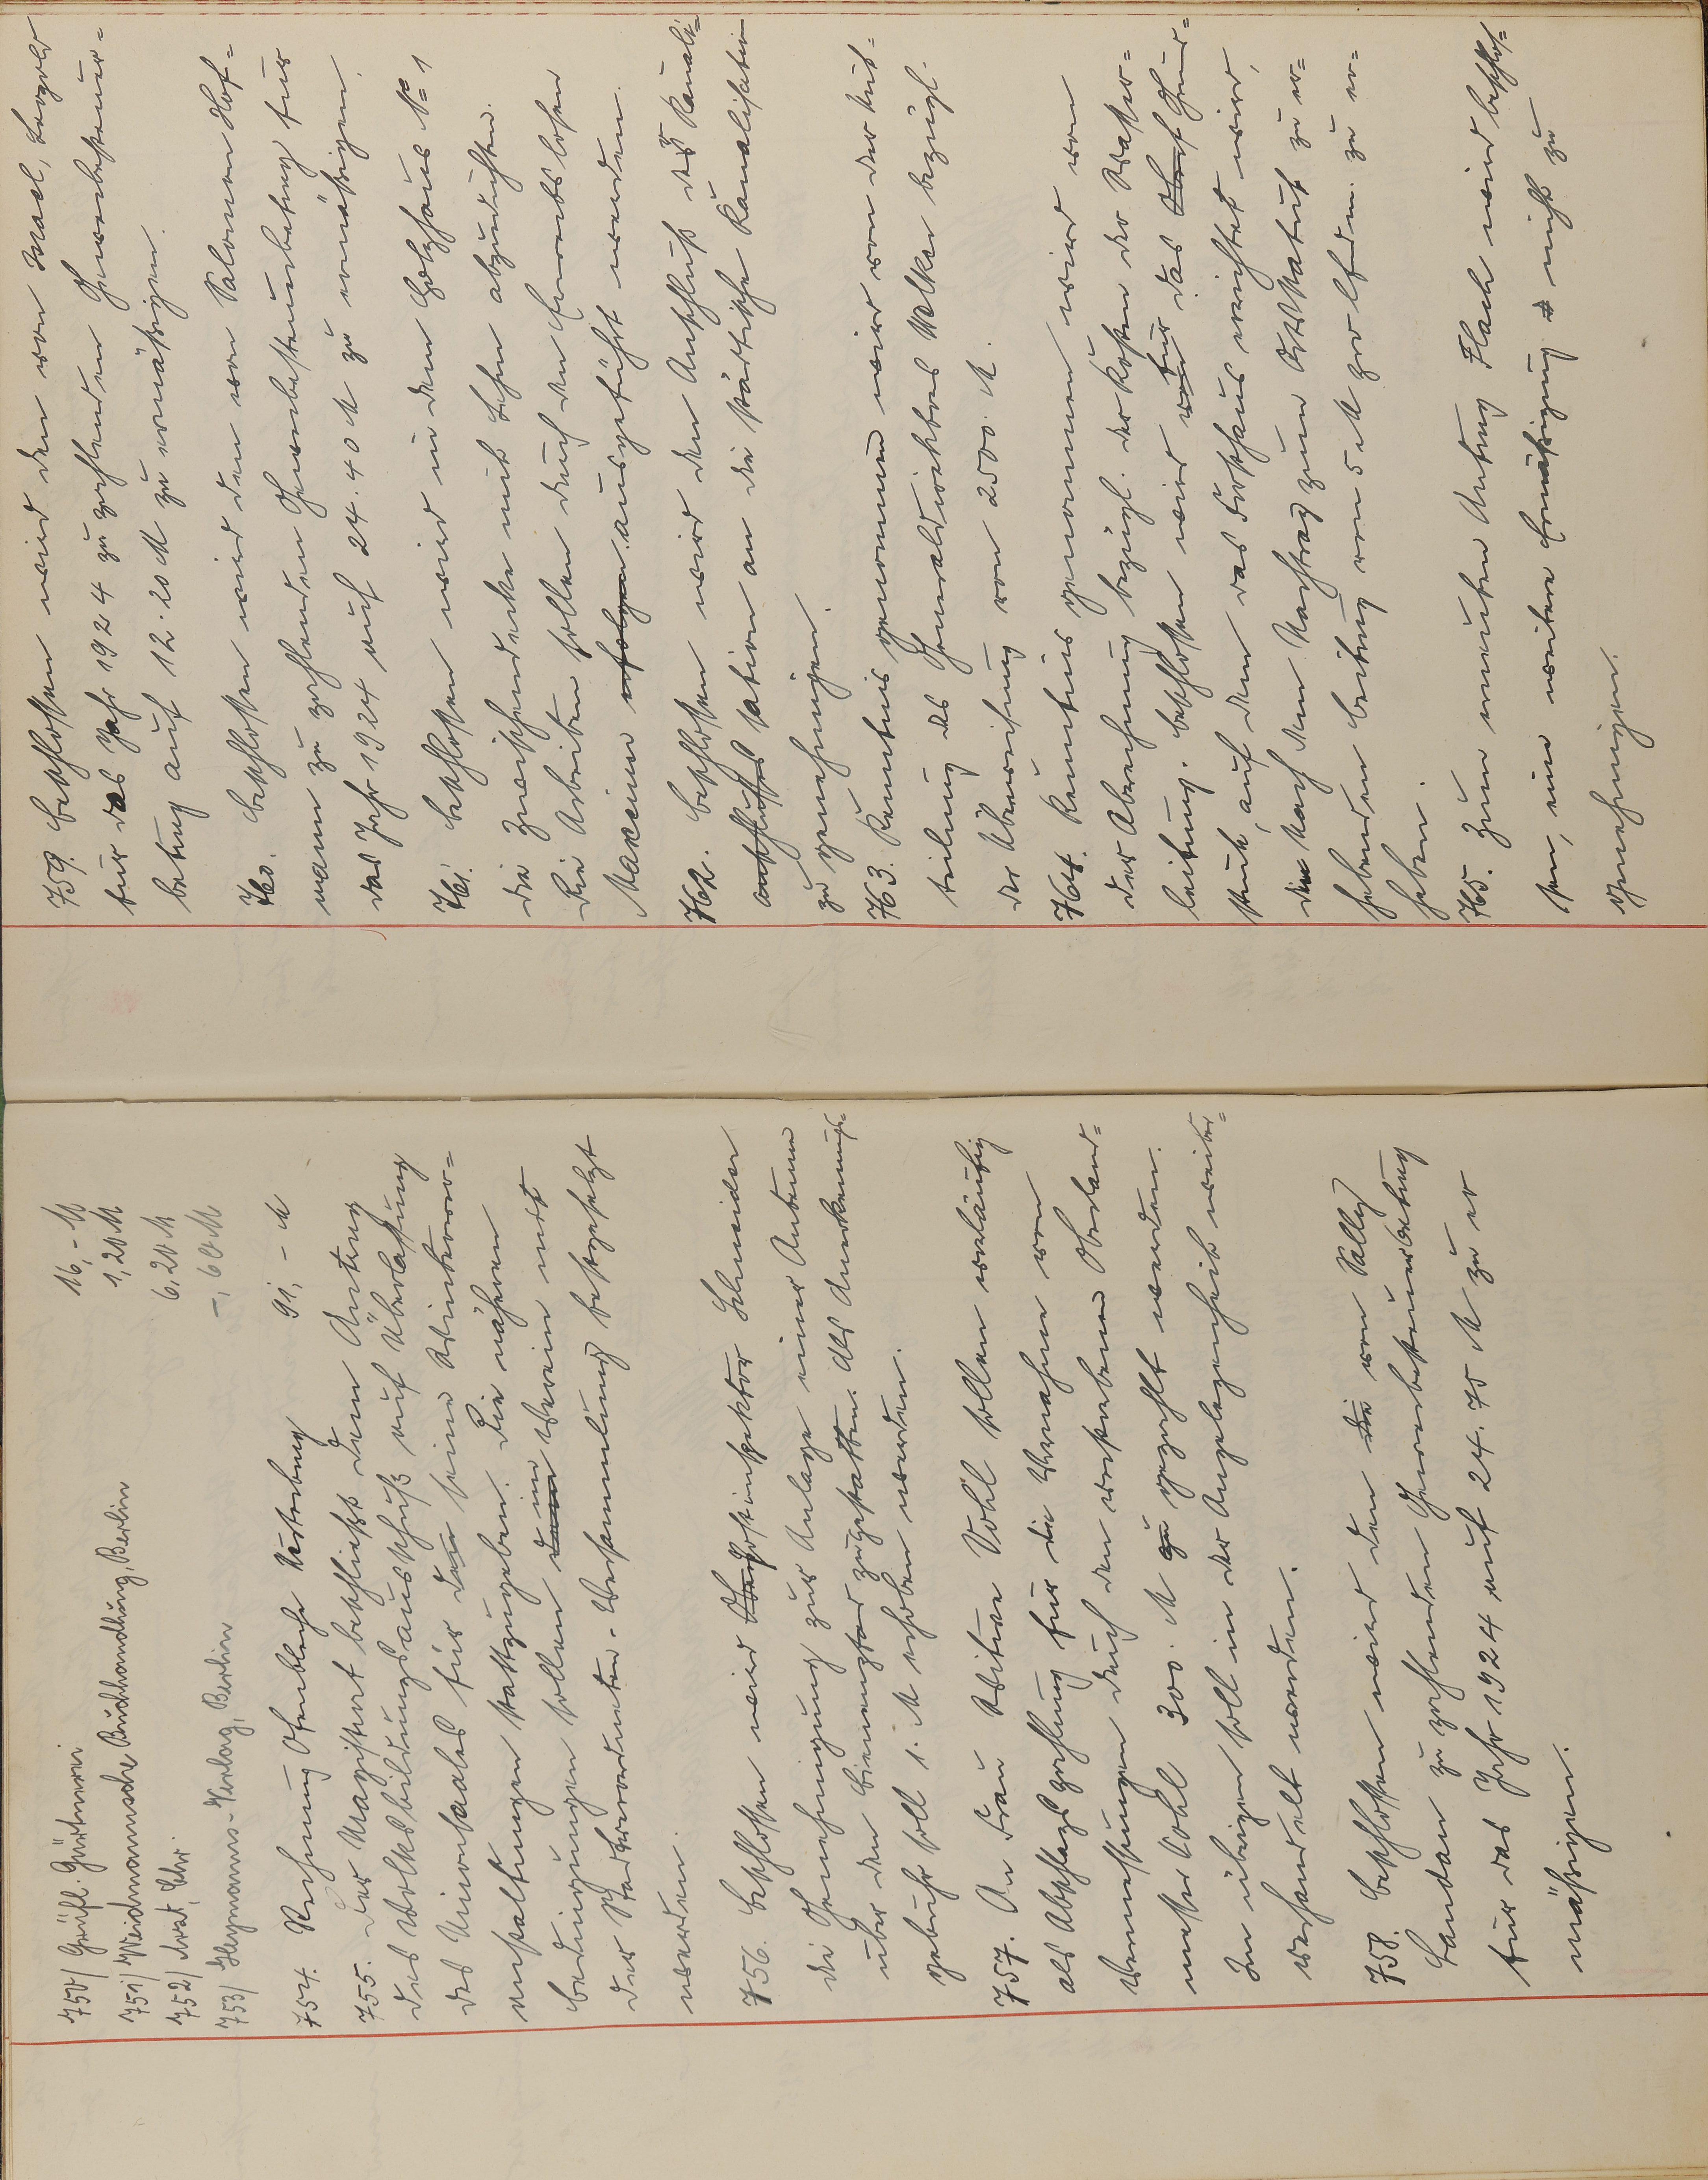 750/ Gräfl. Gärtnerei 16,- M
751/ Weidmannsche Buchhandlung, Berlin 1,20 M
752/ Arat, Uhr. 6,20 M
753/ Heymanns-Verlag, Berlin -,60 M
754. Rechnung Ohnbleche 91,- M
755. Der Magistrat beschließt dem Antrag
des Volksbildungsausschuß auf Überlassung
des Unionsaales für seine Wintervor=
anstaltungen stattzugeben. Die näheren
Bedingungen sollen dem im Verein mit
der Stadtverordneten-Versammlung festgesetzt
werden.
756. Beschlossen wird Ober Postinspektor Schneider
die Genehmigung zur Anlage einer Antenne
über den zugestatten. Als Anerkennungs=
gebühr soll 1. M erhoben werden.
757. An Frau Witwe Vohl sollen vorläufig
als Abschlagszahlung für die Vornahme von
Vermessungen durch den verstorbenen Oberland=
messer Vohl 300. M zu gezahlt werden.
Im übrigen soll in der Angelegenheit weiter=
verhandelt werden.
758. Beschlossen wird den die von Sally
Landau zu zahlenden Gewerbesteuerbetrag
für das Jahr 1924 auf 24.75 M zu er
mäßigen.
759. Beschlossen wird den von Israel,
für das Jahr 1924 zu zahlenden Gewerbesteuer=
betrag auf 12.20 M zu ermäßigen.
760. Beschlossen wird den von Salomon Hof=
mann zu zahlenden Gewerbesteuerbetrag für
das Jahr 1924 auf 24.40 M zu ermäßigen.
761. Beschlossen wird in dem Holzhaus No 1
die Zwischendecke mit Lehm abzudichten.
Die Arbeiten sollen durch den Erwerbslosen
Maxeiner erfolgen ausgeführt werden.
762. Beschlossen wird den Anschluß des Kanali=
anschlusses sation an die städtische Kanalisation
zu genehmigen.
763. Kenntnis genommen wird von der Mit=
teilung des Generaldirektors Welker bezügl.
der Überweisung von 2500. M.
764. Kenntnis genommen wird von
der Abrechnung bezügl. der Kosten der Wasser=
leitung. Beschlossen wird von für das
stück, auf dem das Forsthaus errichtet wird,
den nach dem Nachtrag zum Ortsstatut zu er=
hebenden Beitrag von 5 M pro lfdm. zu er=
heben.
765. Zum erneuten Antrag Flach wird beschlos=
sen, eine weitere Ermäßigung nicht zu
genehmigen.